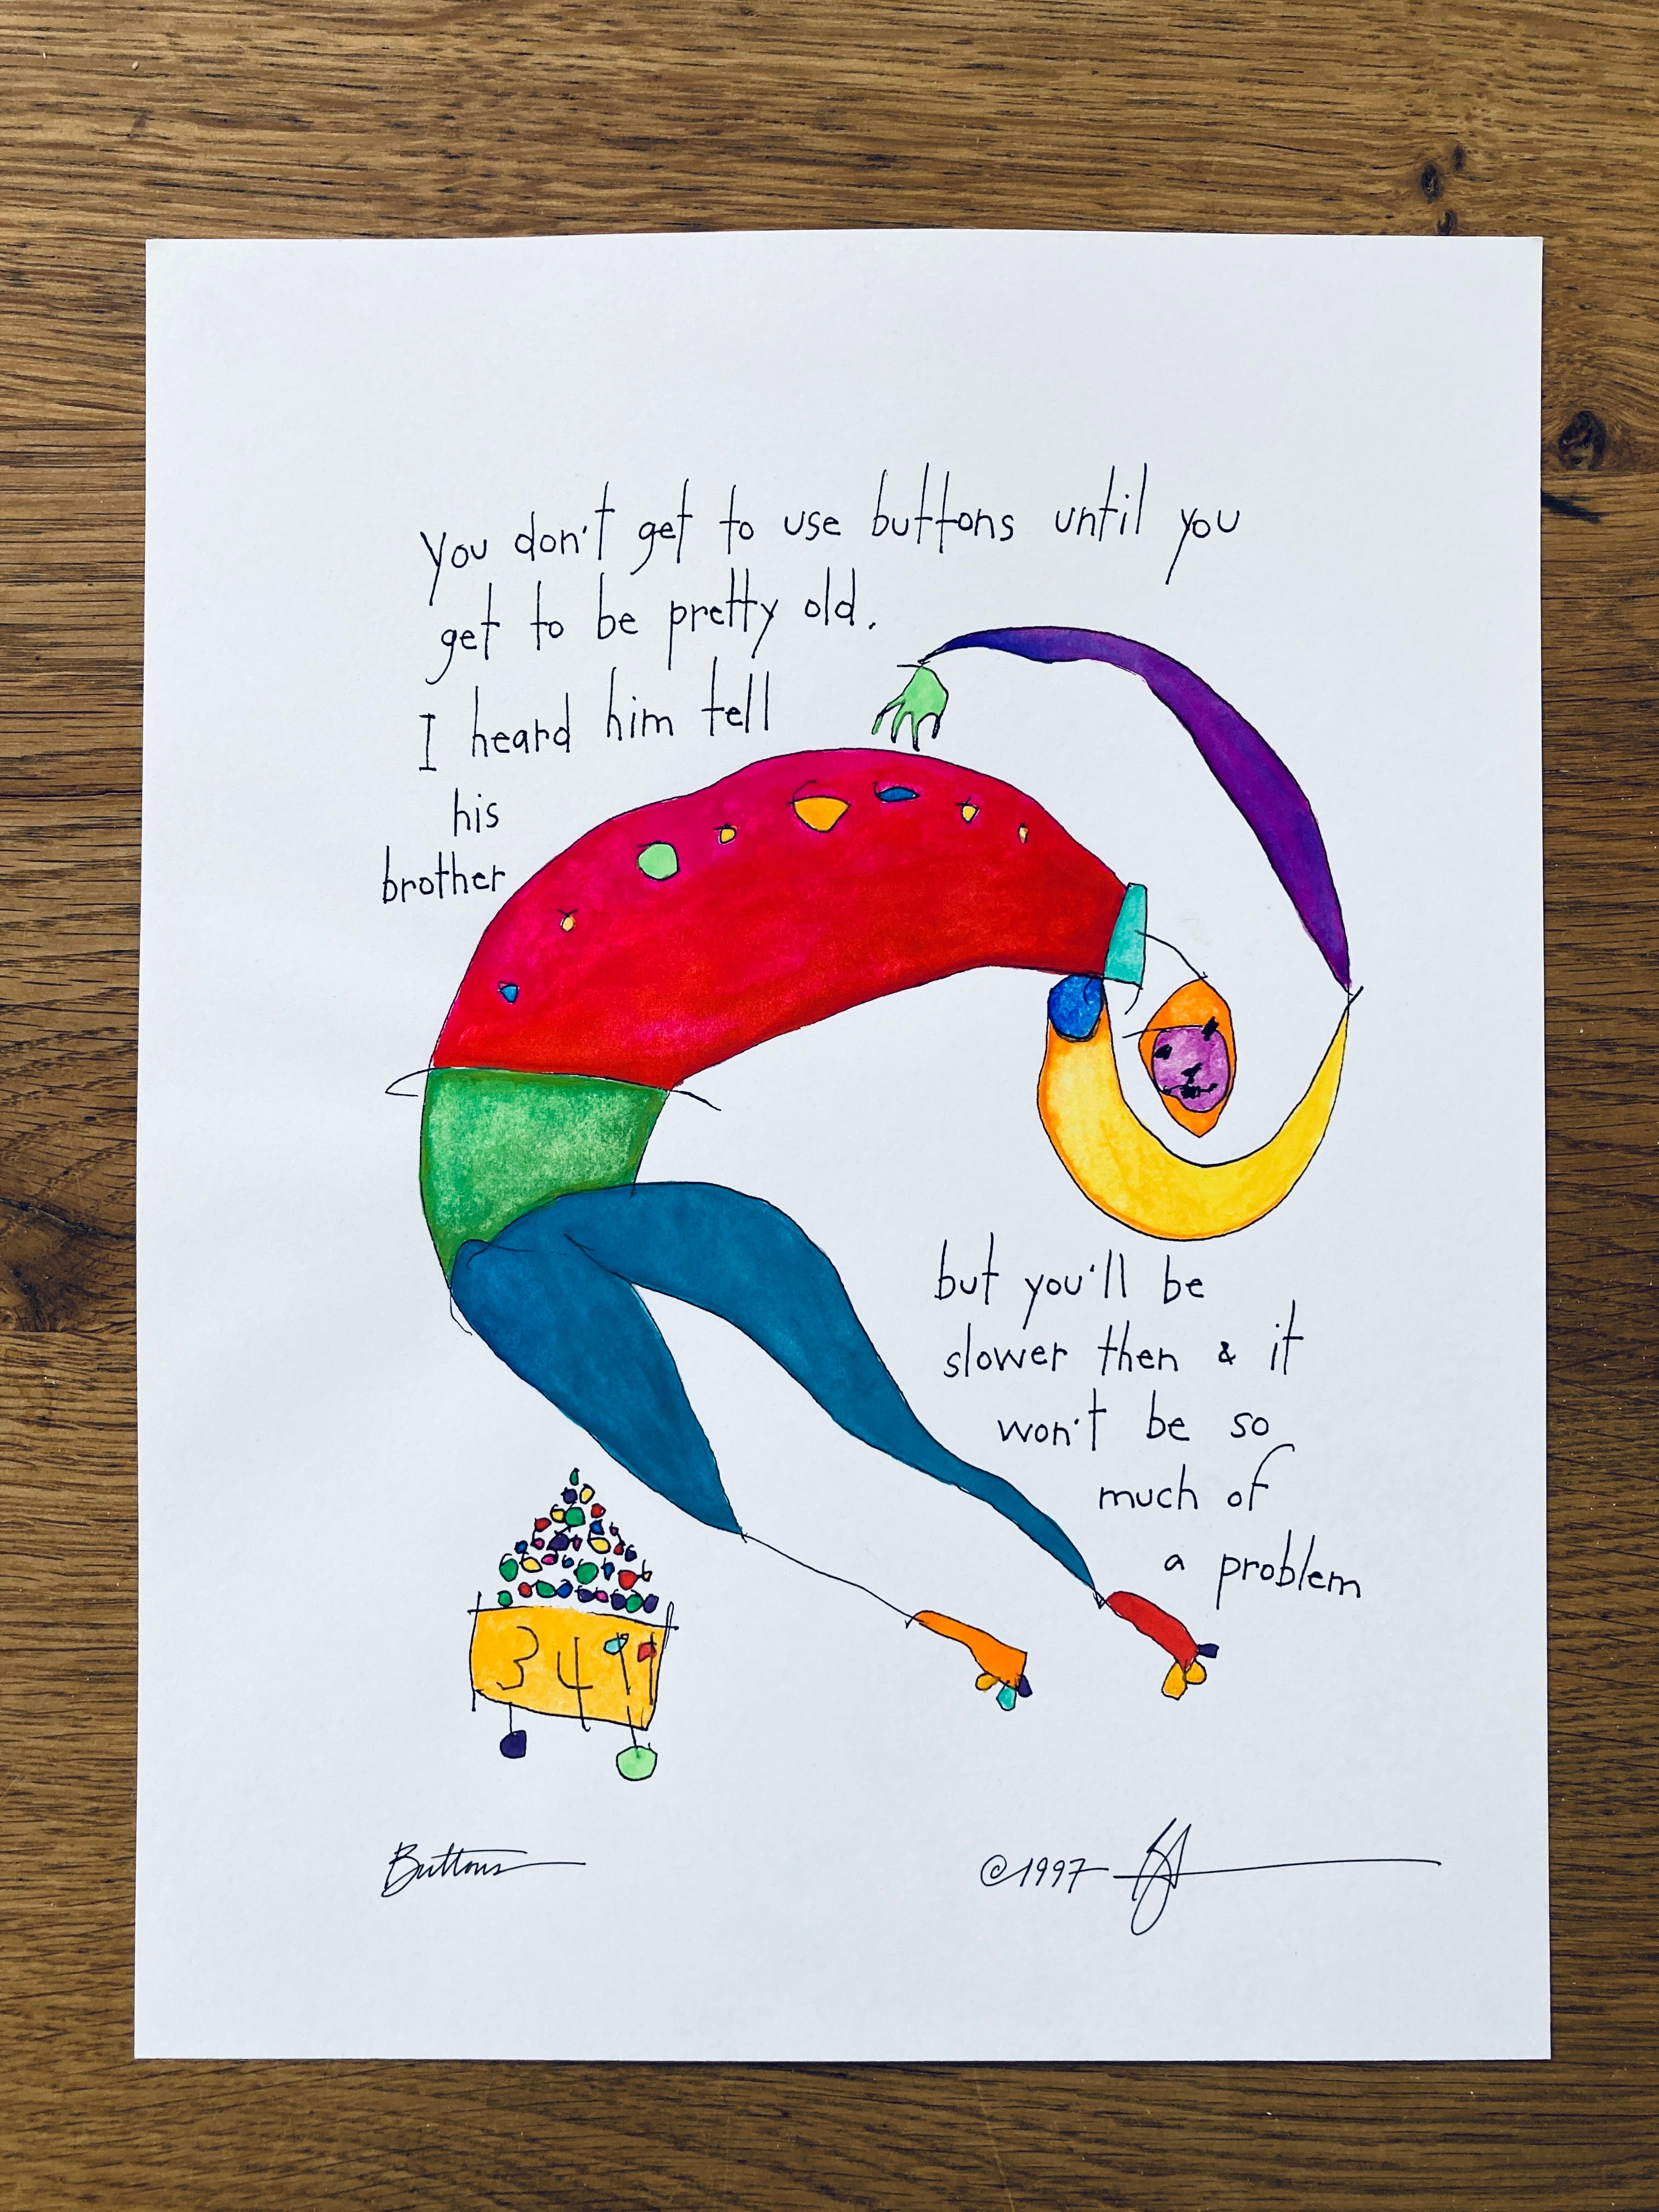 You don't get to use buttons until you
get to be pretty old.
I heard him tell
his
brother
but you'll be
slower then & it
won't be so
much of
a problem
3491
Buttons
©1997